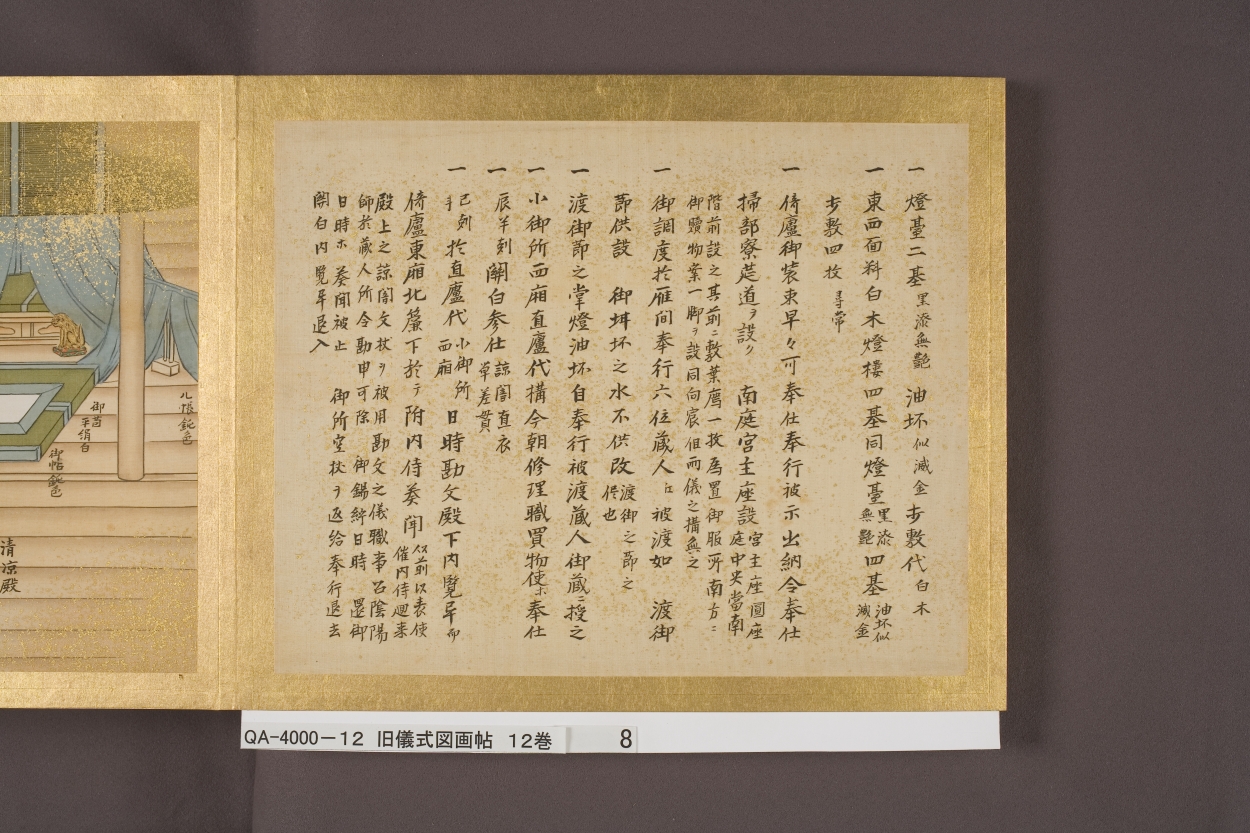 一 燈臺二基 黒漆無艶 油坏 似滅金 步敷代 白木
一 東西面料白木燈樓四基同燈臺 黒漆無艶 四基 油坏似滅金
步敷四枚 尋常
一 倚廬御裝束早々可奉仕奉行被示出納令奉仕
掃部寮莚道ヲ設ク 南庭宮主座設 宮主座圓座庭中央當南
階前設之其前ニ敷葉薦一枚爲置御服所南方ニ
御贖物案一脚ヲ設同向宸但雨儀之搆無之
一 御調度於雁間奉行六位藏人ニ被渡如 渡御
節供設 御坩坏之水不供改 渡御之節之供也
一 渡御節之掌燈油坏自奉行被渡藏人御藏ニ授之
一 小御所西廂直廬代搆今朝修理職買物使ホ奉仕
一 辰半刻關白參仕 諒闇直衣卓差貫
一 巳刻半 於直廬代 小御所西廂 日時勘文殿下内覽早 卽
倚廬東廂北簾下於テ附内侍奏聞 似前以表使催内侍廻來
殿上之諒闇文杖ヲ被用勘文之儀職事召陰陽
師於藏人所令勘申可除 御錫紵日時 還御
日時ホ 奏聞被止 御所空杖ヲ返給奉行退去
關白内覽早退入
几帳鈍色
御茵
半絹白
御帖鈍色
清涼殿
QA-4000-12 旧儀式図画帖 12巻 8